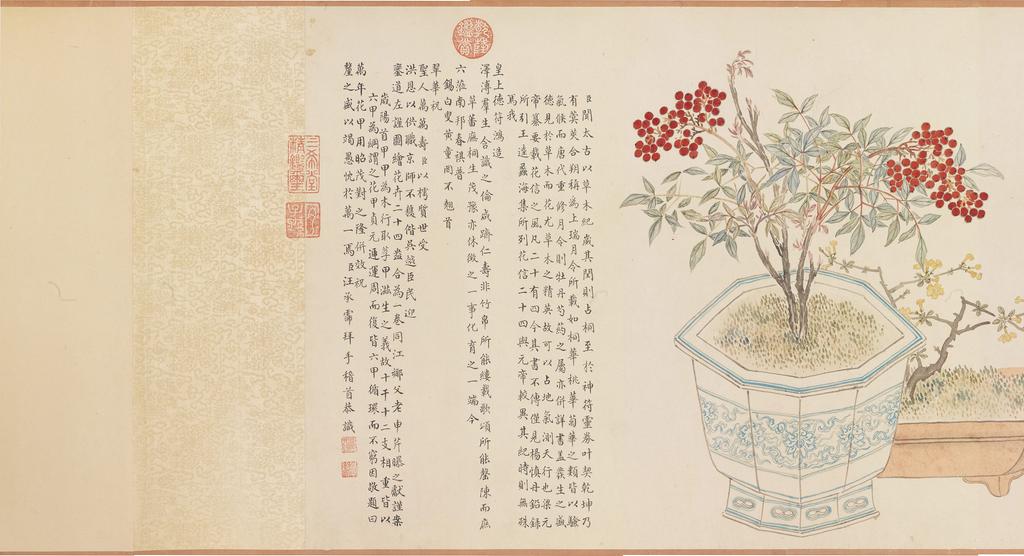 臣聞太古以草木紀歲其閏則占桐至於神符靈券叶契乾坤乃
有蓂莢合朔稱為上瑞月令所載如桐華桃華菊華之類皆以驗
氣候而唐代重修月令則牡丹芍藥之屬亦併詳書蓋羣生之盛
德見於草木而花尤草木之精英故可以占地氣測天行也梁元
帝纂要載花信之風凡二十有四今其書不傳僅見楊慎丹鉛錄
所引王逵蠡海集所列花信二十四與元帝較異其紀時則無殊
焉我
皇上德符鴻造
澤溥羣生含識之倫咸躋仁壽非竹帛所能縷載歌頌所能罄陳而庶
草蕃廡桐生茂豫亦休徵之一事化育之一端今
六巡南邦春禊普
錫白叟黃童罔不翹首
翠華祝
聖人萬萬壽臣以樗質世受
洪恩以供職京師不獲偕吳越臣民迎
鑾道左謹圖繪花卉二十四盆合為一卷同江鄉父老申芹曝之獻謹案
歲陽首甲甲為木行取孚甲滋生之義故十干十二支相重皆以
六甲為綱謂之花甲貞元運周而復皆六甲循環而不窮因敬題曰
萬年花甲用昭茂對之隆併效祝
釐之盛以竭愚忱於萬一焉臣汪承霈拜手稽首恭識
乾隆鑑賞
三希堂精鑑璽
宜子孫